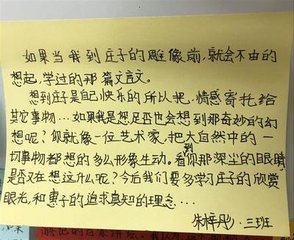 如果当我到庄子的雕像前,就会不由的
想起,学过的那篇文言文。
想到庄子是自己快乐的所以把,情感寄托给
其它事物…如果我是想是否也会想到那奇妙的幻
想呢?似就像一位艺术家,把大自然中的一
切事物都想的多么形象生动,看似那深尘的眼睛
是否又在想这什么呢?今后我们要多学习庄子的欣赏
眼光,和惠子的追求真知的理念…
三班